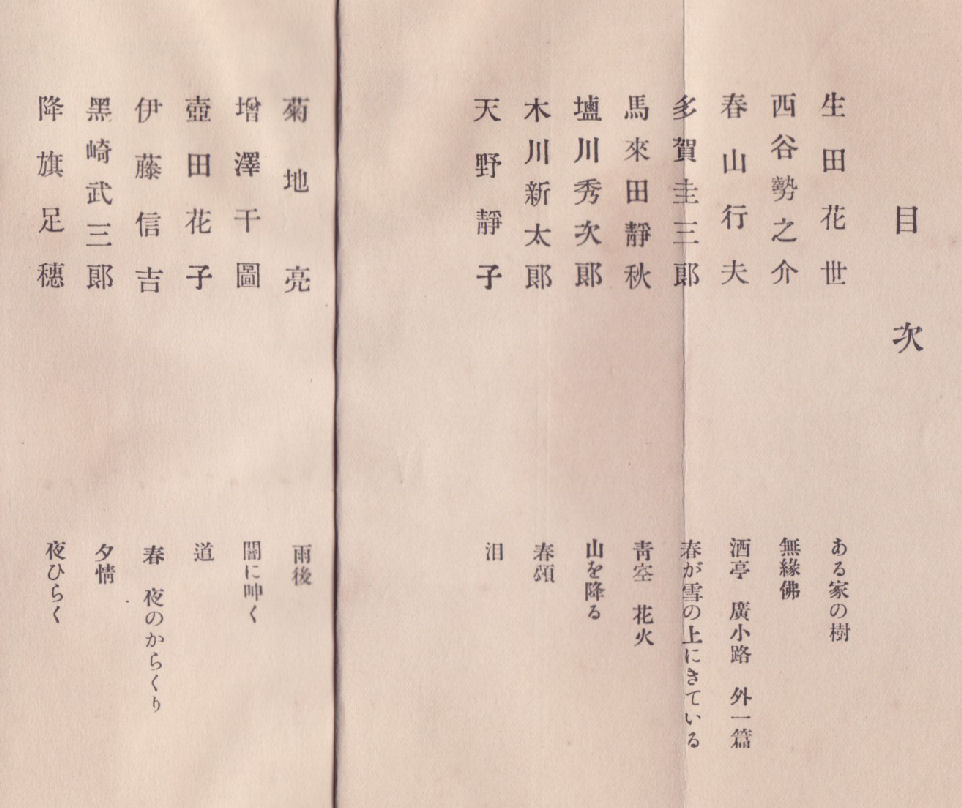 目次
生田花世 ある家の樹
西谷勢之介 無緣佛
春山行夫 酒亭 廣小路 外一篇
多賀圭三郎 春が雪の上にきている
馬來田靜秋 靑空 花火
壚川秀次郎 山を降る
木川新太郎 春頌
天野靜子 泪
菊地亮 雨後
增澤干圖 闇に呻く
壺田花子 道
伊藤信吉 春 夜のからくり
黑崎武三郎 夕情
降旗足穗 夜ひらく